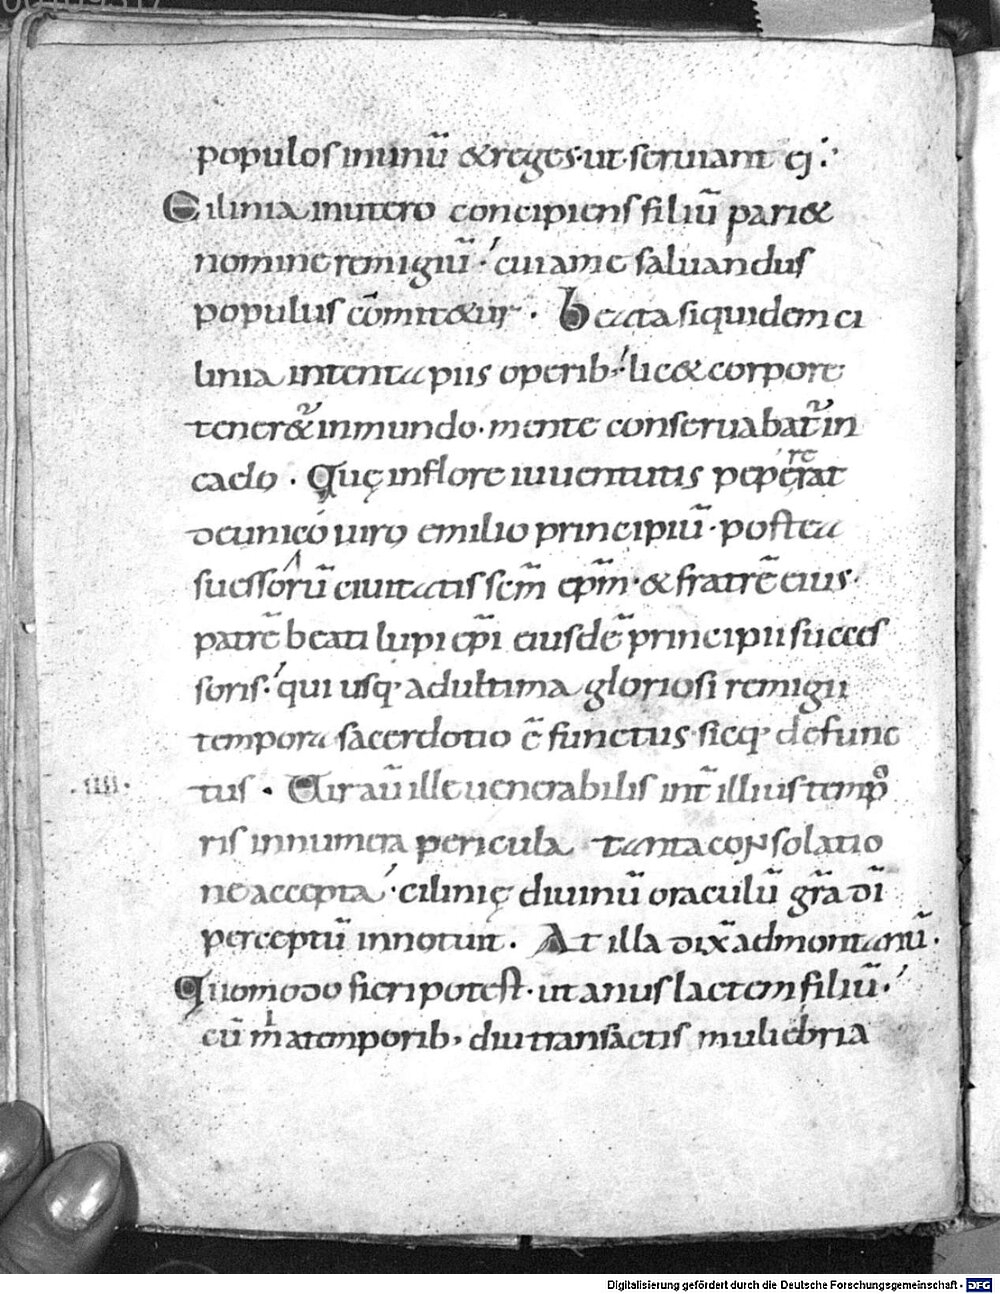 populos inimū & reges· ut· seruiant ej·'
Cilinia in utero concipiens filiū pari&
nomine remigiū·' cui a me saluandus
populus cōmitt&ur· Beata siquidem ci
linia intenta piis operib·' lic& corpore
tener&̄ in mundo· mente conseruabat̄ in
caelo· Quę in flore iuuentutis pepererat
de unico uiro emilio principiū· postea
suessorū ciuitatis sc̄m ep̄m· & fratrē eius·
patrē beati lupi ep̄i eiusdē principii succes
soris·' qui usq· ad ultima gloriosi remigii
tempora sacerdotio ē functus· sicq· defunc
·IIII· tus· Uir aū ille uenerabilis int̄ illius tempo
ris innumera pericula tanta consolatio
ne accepta·' cilinię diuinū oraculū gr̄a dī
perceptū innotuit· At illa dix̄ ad montanū·
Quomodo fieri potest· ut anus lactem filiū·'
cū m̄ a temporib· diu transactis muliebria
Digitalisierung gefördert durch die Deutsche Forschungsgemeinschaft - DFG